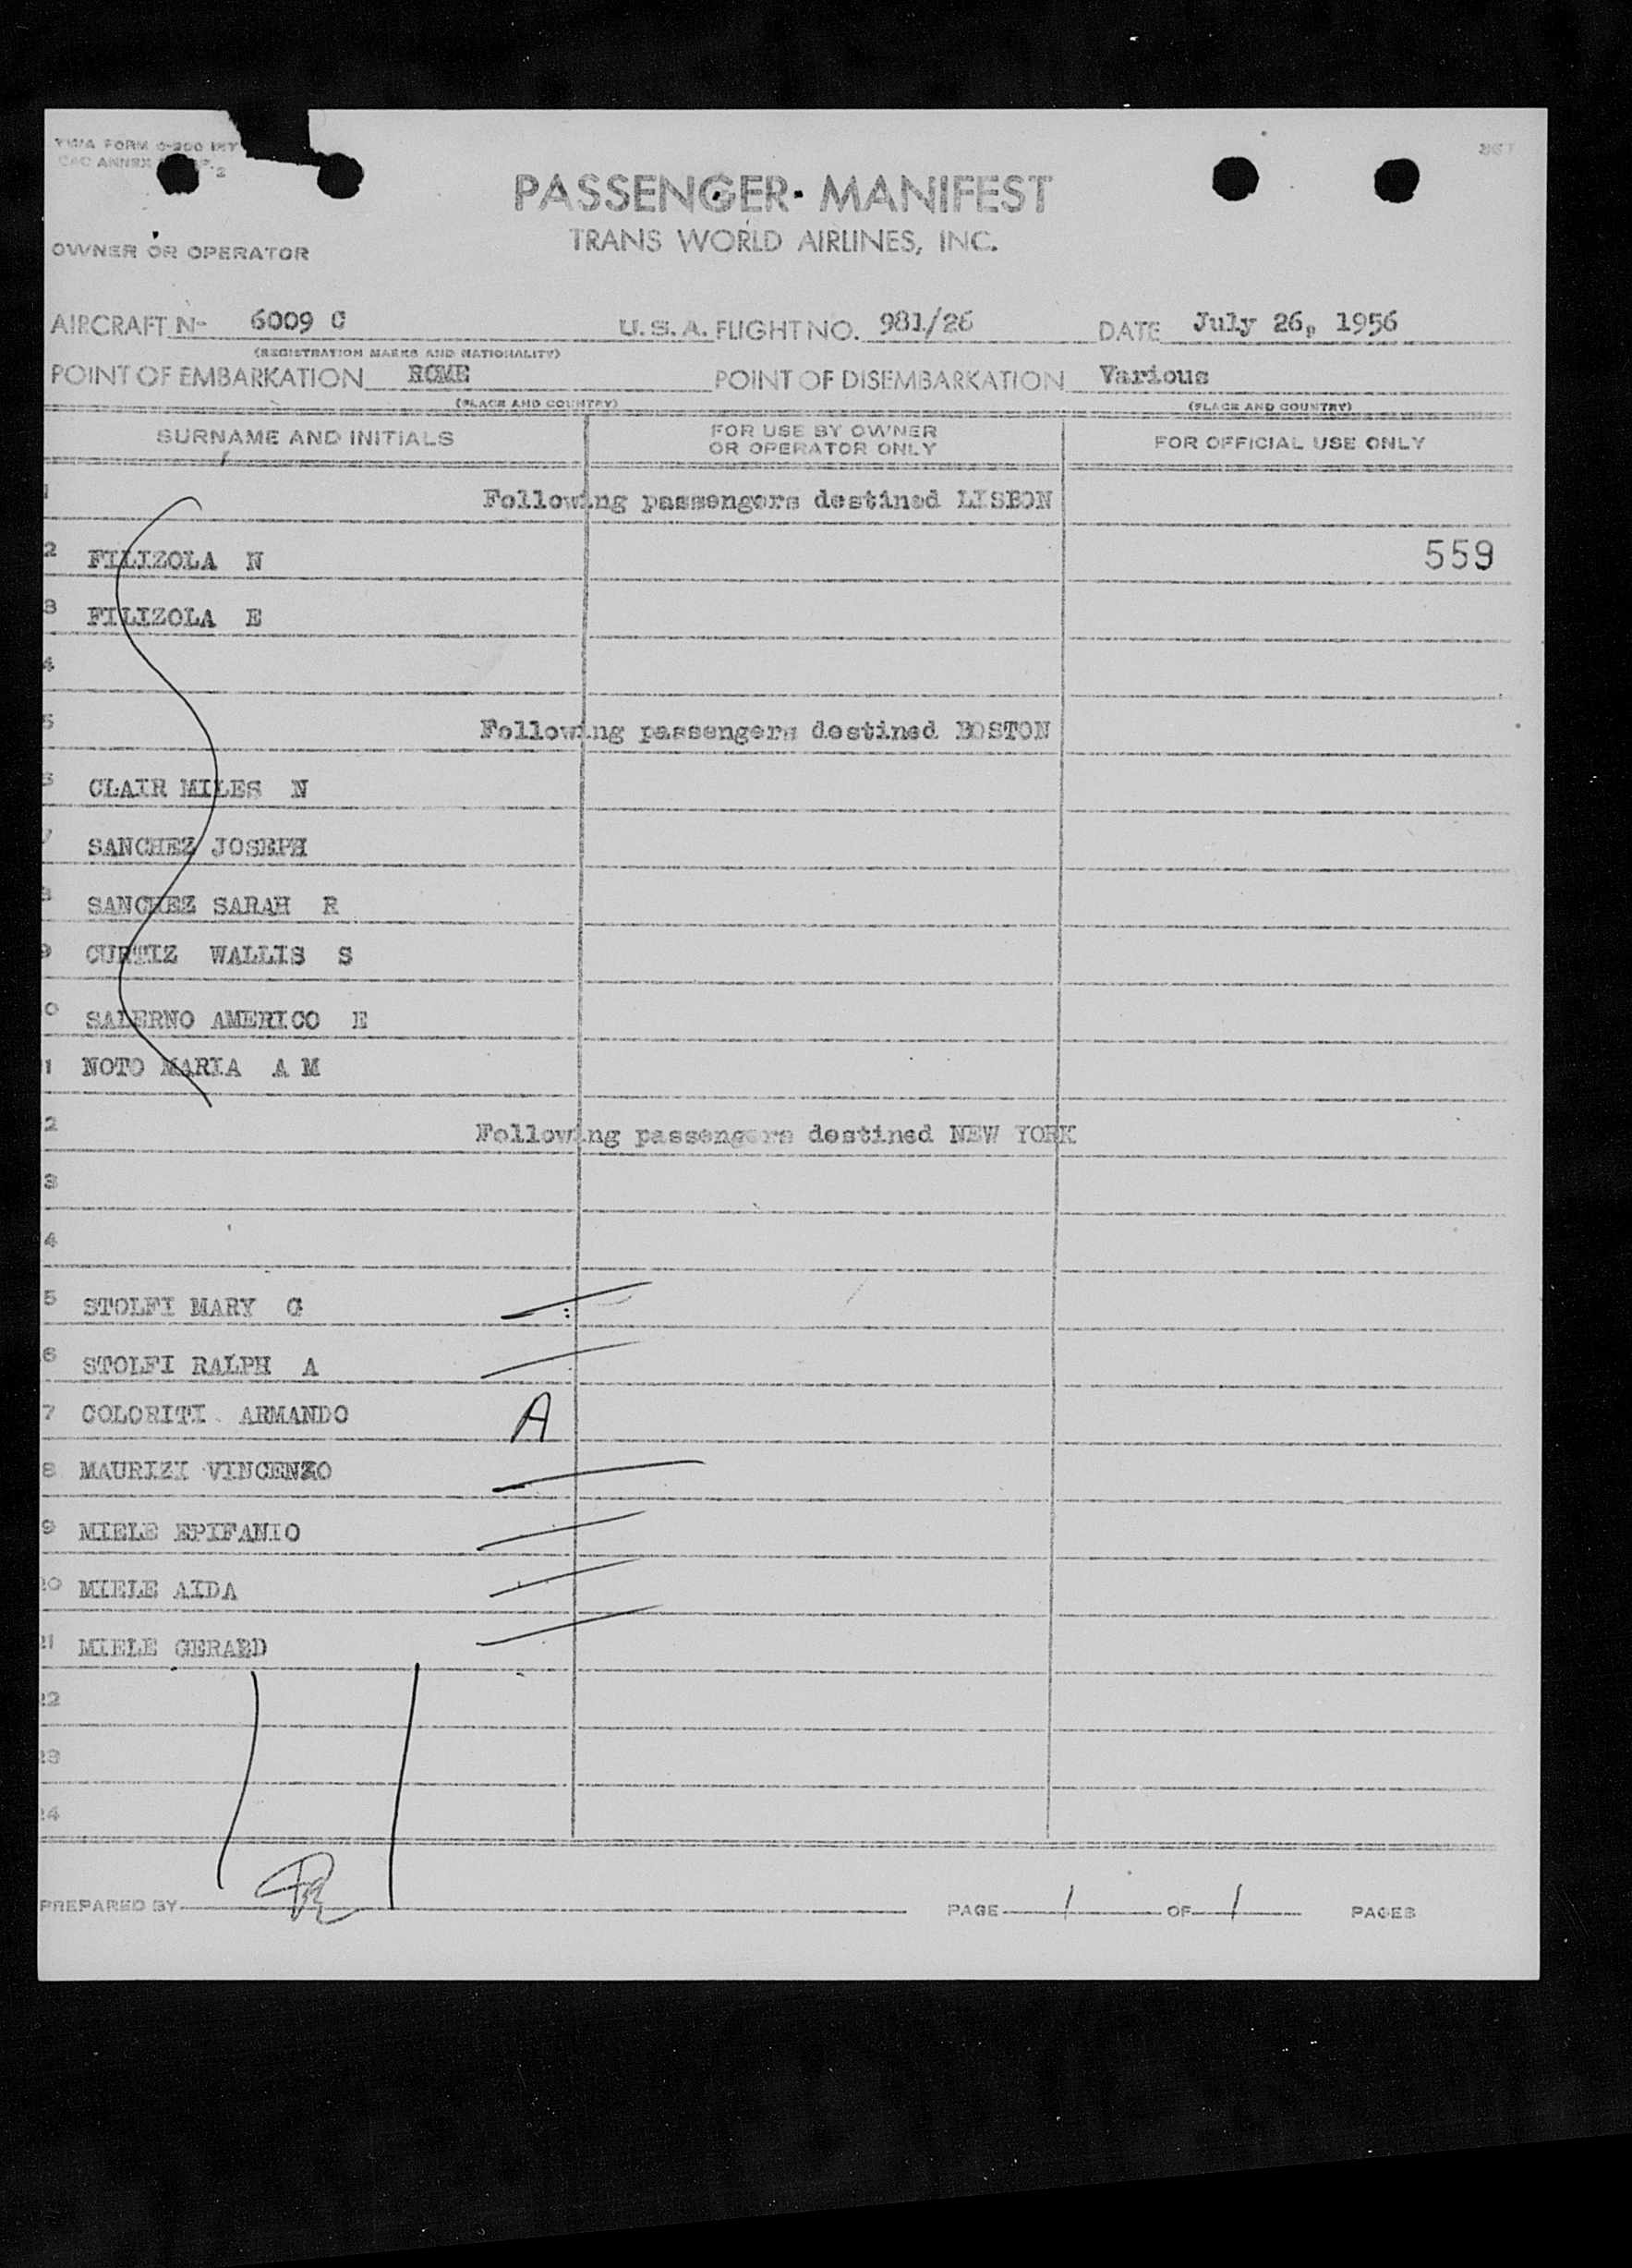 TWA FORM 0-200 INT
CAC ANNEX
2
PASSENGER MANIFEST
TRANS WORLD AIRLINES, INC.
OWNER OR OPERATOR
AIRCRAFT N- 6009 C U.S.A. FLIGHT NO. 981/26 DATE July 26, 1956
(REGISTRATION MARKS AND NATIONALITY)
POINT OF EMBARKATION ROME POINT OF DISEMBARKATION Various
(PLACE AND COUNTRY) (PLACE AND COUNTRY)
SURNAME AND INITIALS FOR USE BY OWNER OR OPERATOR ONLY FOR OFFICIAL USE ONLY
1 Following passengers destined LISBON
2 FILIZOLA N 559
3 FILIZOLA E
4
5 Following passengers destined BOSTON
6 CLAIR MILES N
7 SANCHEZ JOSEPH
8 SANCHEZ SARAH R
9 CURTIZ WALLIS S
0 SALERNO AMERICO E
1 NOTO MARIA A M
2 Following passengers destined NEW YORK
3
4
5 STOLFI MARY G
6 STOLFI RALPH A
7 COLORITI ARMANDO A
8 MAURIZI VINCENZO
9 MIELE EPIFANIO
20 MIELE AIDA
21 MIELE GERARD
22
23
24
PREPARED BY PAGE 1 OF 1 PAGES